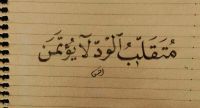 مُتَقَلِّبُ ٱلْوُدِّ لَا يُؤْتَمَنُ